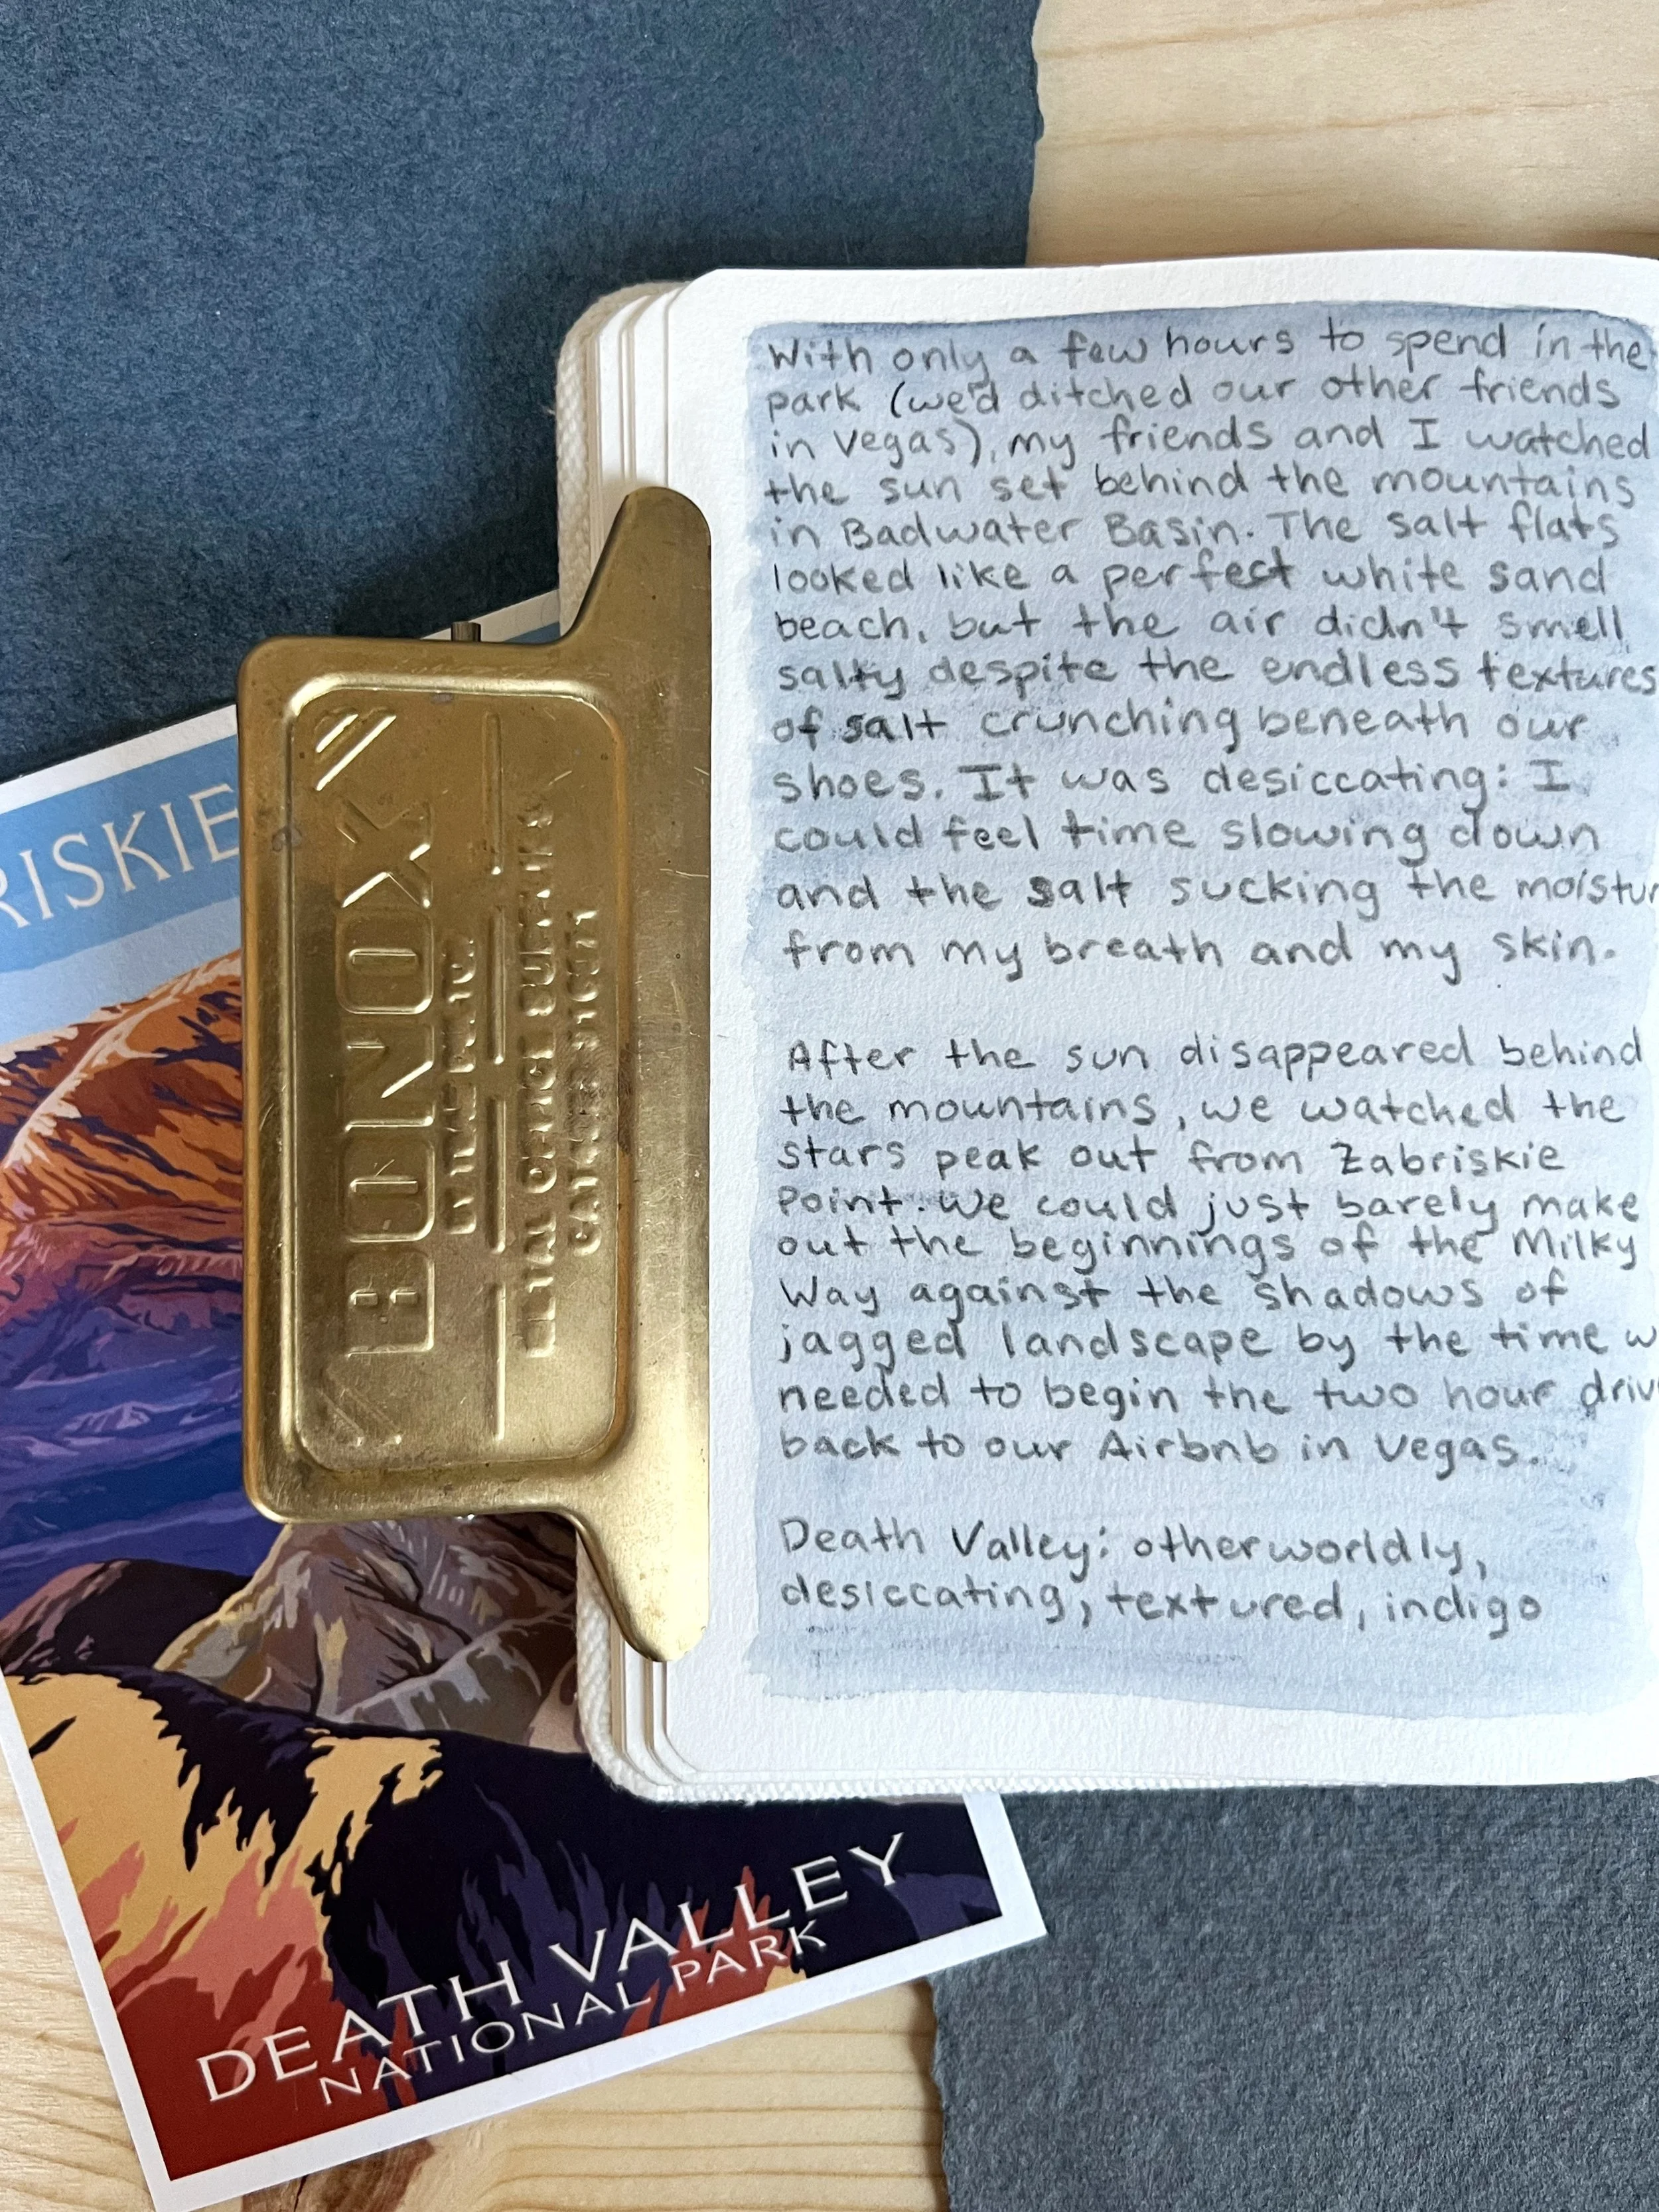 With only a few hours to spend in the
park (we'd ditched our other friends
in Vegas), my friends and I watched
the sun set behind the mountains
in Badwater Basin. The salt flats
looked like a perfect white sand
beach, but the air didn't smell
salty despite the endless textures
of salt crunching beneath our
shoes. It was desiccating: I
could feel time slowing down
and the salt sucking the moistur
from my breath and my skin.
After the sun disappeared behind
the mountains, we watched the
stars peak out from Zabriskie
Point. We could just barely make
out the beginnings of the Milky
Way against the shadows of
jagged landscape by the time w
needed to begin the two hour driv
back to our Airbnb in Vegas.
Death Valley: otherworldly,
desiccating, textured, indigo
BONOX
METAL OFFICE SUPPLIES
RISKIE
DEATH VALLEY
NATIONAL PARK